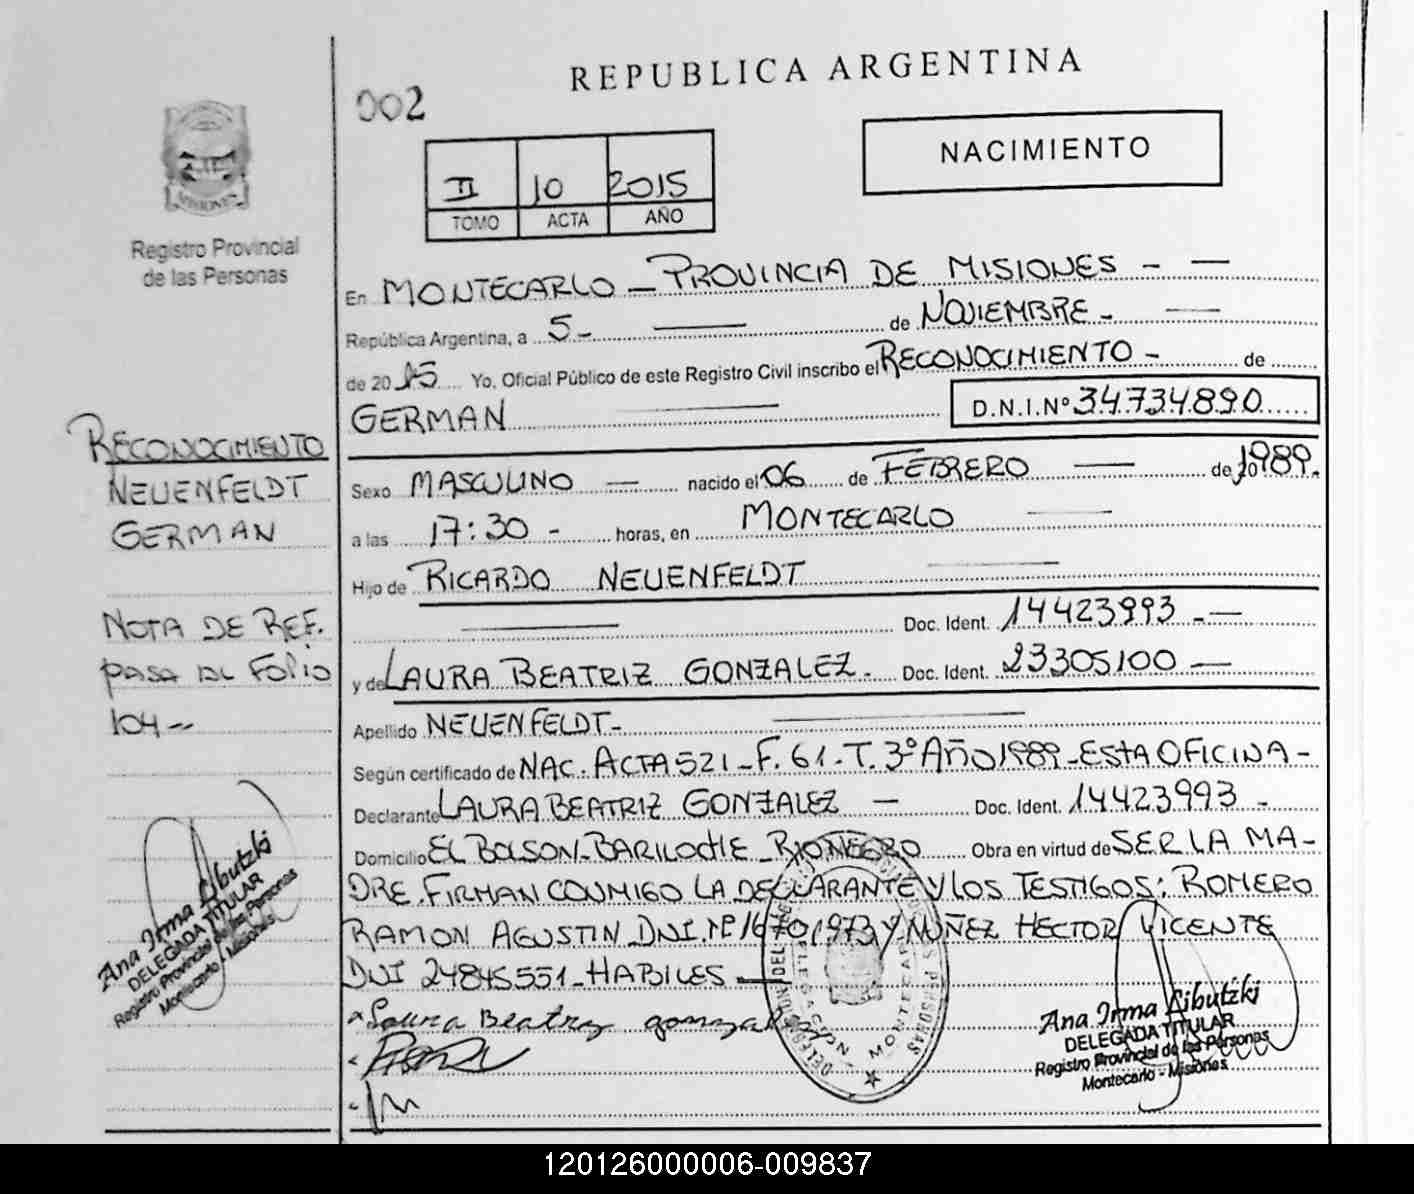 REPUBLICA ARGENTINA
002
NACIMIENTO
II 10 2015
TOMO ACTA AÑO
MISIONES
Registro Provincial
de las Personas
En MONTECARLO - PROVINCIA DE MISIONES -
República Argentina, a 5- de NOVIEMBRE -
de 2015 Yo, Oficial Público de este Registro Civil inscribo el RECONOCIMIENTO - de
GERMAN D.N.I.Nº 34734890
Sexo MASCULINO — nacido el 06 de FEBRERO — de 1989.
a las 17:30 - horas, en MONTECARLO —
Hijo de RICARDO NEUENFELDT —
— Doc. Ident. 14423993 - —
y de LAURA BEATRIZ GONZALEZ. Doc. Ident. 23305100 —
Apellido NEUENFELDT- —
Según certificado de NAC. ACTA 521 - F. 61 - T. 3º AÑO 1989 - ESTA OFICINA -
Declarante LAURA BEATRIZ GONZALEZ — Doc. Ident. 14423993 -
Domicilio EL BOLSON - BARILOCHE - RIO NEGRO Obra en virtud de SER LA MA-
DRE. FIRMAN CONMIGO LA DECLARANTE Y LOS TESTIGOS: ROMERO
RAMON AGUSTIN DNI. Nº 16701973 Y NUÑEZ HECTOR VICENTE
DNI 24845551 - HABILES —
Laura Beatriz gonzalez
RECONOCIMIENTO
NEUENFELDT
GERMAN
NOTA DE REF.
PASA AL FOLIO
104 --
Ana Irma Libutzki
DELEGADA TITULAR
Registro Provincial de las Personas
Montecarlo - Misiones
DELEGACION MONTECARLO
PERSONAS
Ana Irma Libutzki
DELEGADA TITULAR
Registro Provincial de las Personas
Montecarlo - Misiones
120126000006-009837